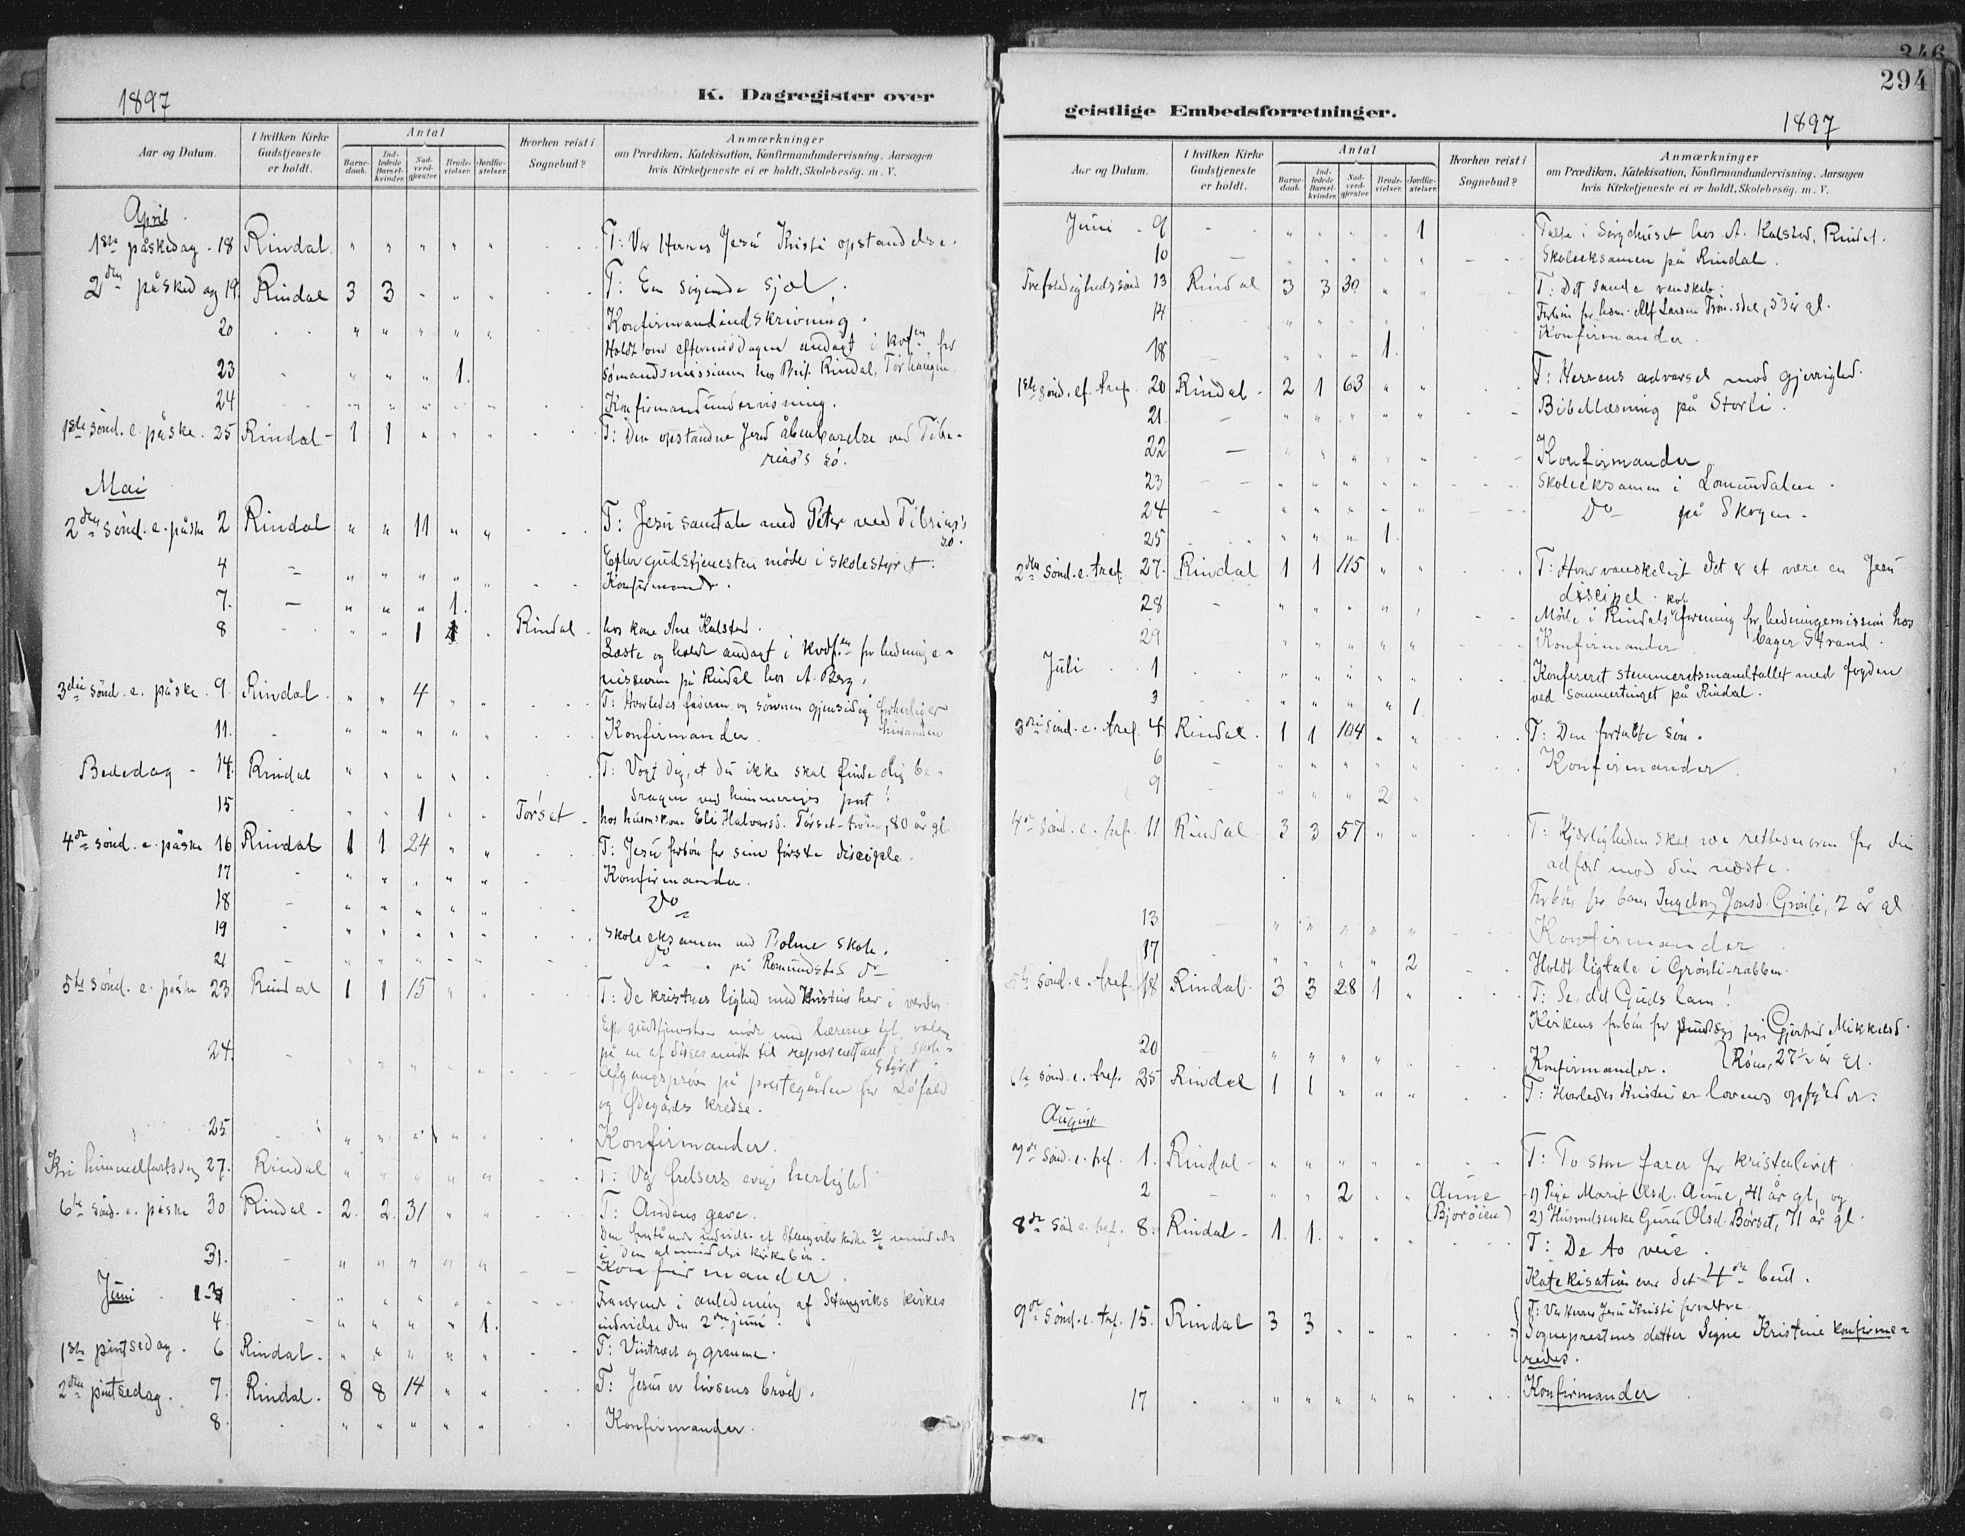 1897
K. Dagregister over
Aar og Datum.
I hvilken Kirke Gudstjeneste er holdt.
Antal
Barne-daab.
Ind-ledede Barsel-kvinder.
Nad-verd-gjæster.
Brude-vielser.
Jordfæ-stelser.
Hvorhen reist i Sognebud?
Anmærkninger
om Prædiken, Katekisation, Konfirmandundervisning, Aarsagen
hvis Kirketjeneste ei er holdt, Skolebesøg. m. V.
April.
1ste påskedag - 18 Rindal. " " " " " T: Vor Herres Jesu Kristi opstandelse.
2den påskedag 19. Rindal 3 3 " " " T: En søgende sjæl.
20 " " " " " Konfirmandindskrivning.
Holdt om eftermiddagen andagt i kvf.en for
23 " " " " 1. sømandsmissionen hos Rindal,
24 " " " " " Konfirmandundervisning.
1ste sønd. e. påske. 25 Rindal - 1 1 " " " T: Den opstandne Jesu åbenbarelse ved Tibe-
rias's sø.
Mai
2den sønd. e. påske 2 Rindal " " 11 " " T: Jesu samtale med Peter ved Tibrias's
sø.
Efter gudstjenesten møde i skolestyret.
4 " " " " " Konfirmander.
7. " " " 1.
8 " " 1 " Rindal. hos kone Ane Kalstad.
Læste og holdt andagt i kvdf.en for hedninge-
missionen på Rindal hos A. Berg.
3die sønd. e. påske. 9. Rindal. " " 4 " " T: Hvorledes faderen og sønnen gjensidig
hinanden
11. " " " " " Konfirmander.
Bededag - 14. Rindal " " " " " T: Vogt dig, at du ikke skal finde dig be-
dragen ved himmeriges port!
15 " " 1 " " Tørset - hos huusm.kone Eli Halvorsd. Tørset-trøen, 80 år gl.
4de sønd. e. påske 16 Rindal 1 1 24 " " T: Jesu forbøn for sine første disciple.
17 " " " " " Konfirmander.
18 " " " " " Do
19 " " " " " Skoleeksamen ved Bolme skole.
21 " " " " " do på Romundstad
5te sønd. e. påske 23. Rindal 1 1 15 " " T: De kristnes lighed med Kristus her i verden
Eft. gudstjenesten møde med lærerne til valg
på en af deres midte til repræsentant i skole-
styret.
24. Afgangsprøve på prestegården for Løfald
og Ødegårds kredse.
25 " " " " " Konfirmander.
Kri himmelfartsdag 27. Rindal " " " " " T: Vor frelsers evige herlighed
6te sønd. e. påske 30 Rindal - 2. 2. 31 " " T: Andens gave.
Den forestående indvielse af Stangviks kirke 2/6
i den almindel. kirkebøn.
31. " " " " " Konfirmander.
Juni 1-3 " " " " " Fraværende i anledning af Stangviks kirkes
4. " " " " 1. indvielse den 2den juni.
1ste pintsedag. 6 Rindal. " " " " " T: Vintræet og grenene.
2den pintsedag. 7. Rindal. 8 8 14 " " T: Jesus er livsens brød.
8. " " " " " Konfirmander.
346
294
geistlige Embedsforretninger.
1897
Aar og Datum.
I hvilken Kirke Gudstjeneste er holdt.
Antal
Barne-daab.
Ind-ledede Barsel-kvinder.
Nad-verd-gjæster.
Brude-vielser.
Jordfæ-stelser.
Hvorhen reist i Sognebud?
Anmærkninger
om Prædiken, Katekisation, Konfirmandundervisning, Aarsagen
hvis Kirketjeneste ei er holdt, Skolebesøg. m. V.
Juni - 9 " " " " 1 Talte i Sørgehuset hos A. Kalstad, Rindal.
10 " " " " " Skoleeksamen på Rindal.
Trefoldighedssønd 13 Rindal 3 3 30 " " T: Det sande venskab.
Forbøn for Alf Larsen 53 år gl.
14 " " " " " Konfirmander.
18 " " " 1.
1ste sønd. ef. tref. 20 Rindal - 2 1 63 " " T: Herrens advarsel mod gjerrighed.
21 " " " " " Bibellæsning på Storli.
22 " " " " " Konfirmander
23 " " " " " Skoleeksamen i Lomundalen.
24 " " " " " Do på Skogen.
25 " " " 1.
2den sønd. e. tref. 27. Rindal 1 1 115 " " T: Hvor vanskeligt det er at være en Jesu
discipel.
28 " " " " " Møde i Rindals kvf. forening for hedningemission hos
29 " " " " " Konfirmander. Strand.
Juli 1 " " " " " Konfereret stemmeretsmandtallet med fogden
3 " " " " 1. ved sommertinget på Rindal.
3die sønd. e. tref. 4. Rindal. 1 1 104 " " T: Den fortabte søn.
6 " " " " " Konfirmander.
9 " " " 2 "
4de sønd. e. tref. 11 Rindal 3 3 57 " " T: Kjærligheden skal være rettesnoren for din
adfærd mod din næste.
Forbøn for barn Ingeborg Jonsd. Grønli, 2 år gl.
13 " " " " " Konfirmander
17 " " " " 2 Holdt ligtale i Grønli-rabben.
5te sønd. e. tref. 18 Rindal. 3 3 28 1 " T: Se, det Guds lam!
Kirkens forbøn for pige Gjertrud Mikkelsd.
Røen, 27½ år gl.
20 " " " " " Konfirmander.
6te sønd. e. tref. 25 Rindal 1 1 " " " T: Hvorledes Kristus er lovens opfylder.
August
7de sønd. e. tref. 1. Rindal - " " " " " T: To store farer for kristenlivet
2 " " 2 " " Aune (Bjørøien) 1) Pige Marit Olsd. Aune, 41 år gl, og
2) Husmdsenke Guru Olsd. Børset, 71 år gl.
8de sønd e. tref. 8. Rindal - 1. 1. " " " T: De to veie.
Katekisation over det 4de bud.
9de sønd. e. tref. 15. Rindal 3 3 " " " T: Vor Herres Jesu Kristi
Sogneprestens datter Signe Kristine konfirme-
redes.
17 " " " " " Konfirmander